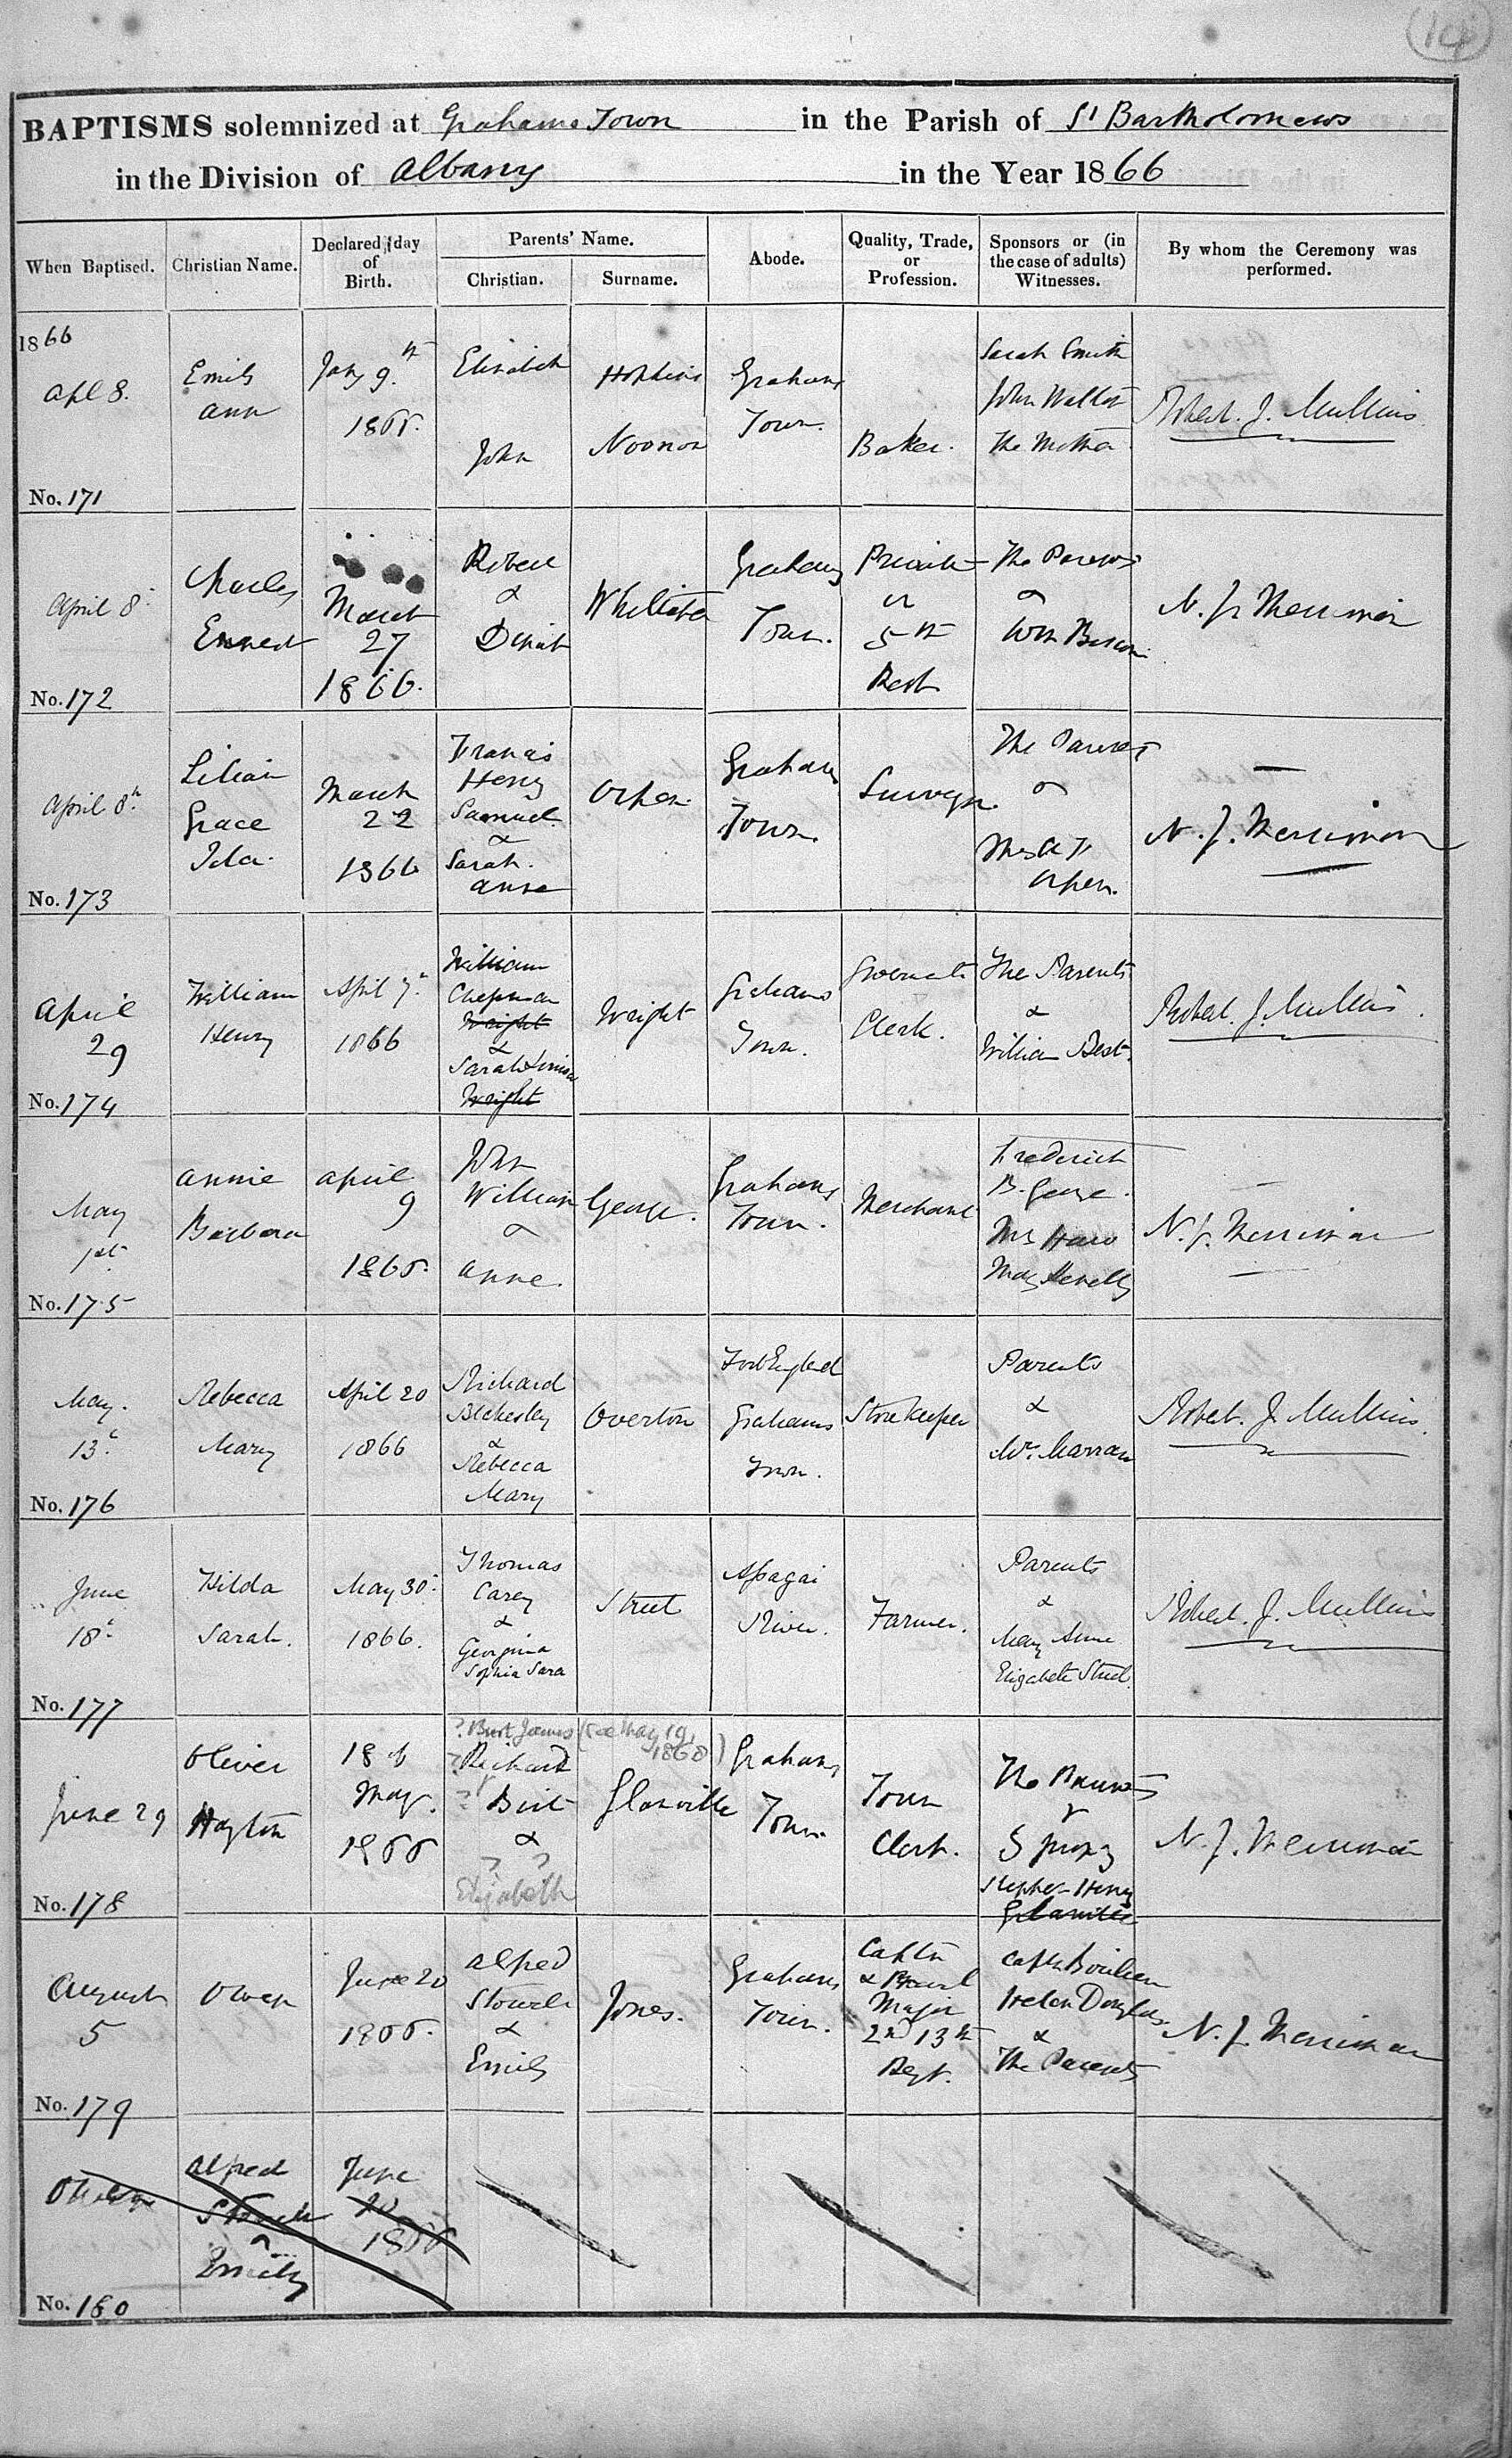 14
BAPTISMS solemnized at Grahams Town in the Parish of St Bartholomews
in the Division of Albany in the Year 1866
When Baptised.
Christian Name.
Declared day
of
Birth.
Parents' Name.
Christian.
Surname.
Abode.
Quality, Trade,
or
Profession.
Sponsors or (in
the case of adults)
Witnesses.
By whom the Ceremony was
performed.
1866
Apl 8.
No. 171
Emily
Ann
Jany 9th
1866.
Elizabeth
John
Hopkins
Noonon
Grahams
Town.
Baker.
Sarah Smith
John Walter
The Mother
Robert. J. Mullins
April 8
No. 172
Charles
Ernest
March
27
1866.
Robert
&
Dinah
Grahams
Town.
Private
in
5th
Regt
The Parents
&
Wm
N. J. Merriman
April 8th
No. 173
Lilian
Grace
Ida.
March
22
1866
Francis
Henry
Samuel
&
Sarah.
Anne
Orpen.
Grahams
Town.
Surveyor.
The Parents
&
Orpen.
N. J. Merriman
April
29
No. 174
William
Henry
April 7th
1866
William
Chapman
Wright
&
Sarah Louisa
Wright
Wright
Grahams
Town.
Clerk.
The Parents
&
William Best.
Robert. J. Mullins.
May
1st
No. 175
Annie
Barbara
April
9
1866.
John
William
&
Anne.
George.
Grahams
Town.
Merchant
Frederick
B. George.
Mrs Haw
N. J. Merriman
May.
13th
No. 176
Rebecca
Mary
April 20
1866
Richard
Blakesley
&
Rebecca
Mary
Overton
Fort England
Grahams
Town.
Storekeeper
Parents
&
Mr. Marran
Robert. J. Mullins.
June
18th
No. 177
Hilda
Sarah.
May 30th
1866.
Thomas
Carey
&
Georgina
Sophia Sara
Street
Assagai
River.
Farmer.
Parents
&
Mary Anne
Elizabeth Street.
Robert. J. Mullins
June 29
No. 178
Oliver
Hayton
18 of
May.
1866
? Burt James (see May 19,
1868)
? Richard
? Burt
&
? ?
Elizabeth
Glanville
Grahams
Town.
Town
Clerk.
The Parents
&
S proxy
Stephen Henry
Glanville
N. J. Merriman
August
5
No. 179
Owen
June 20
1866.
Alfred
Stowell
&
Emily
Jones.
Grahams
Town.
Captn
& Brevet
Major
2nd 13th
Regt.
Helen Douglas.
&
The Parents
N. J. Merriman
No. 180
Alfred
Stowell
&
Emily
June
20
1866